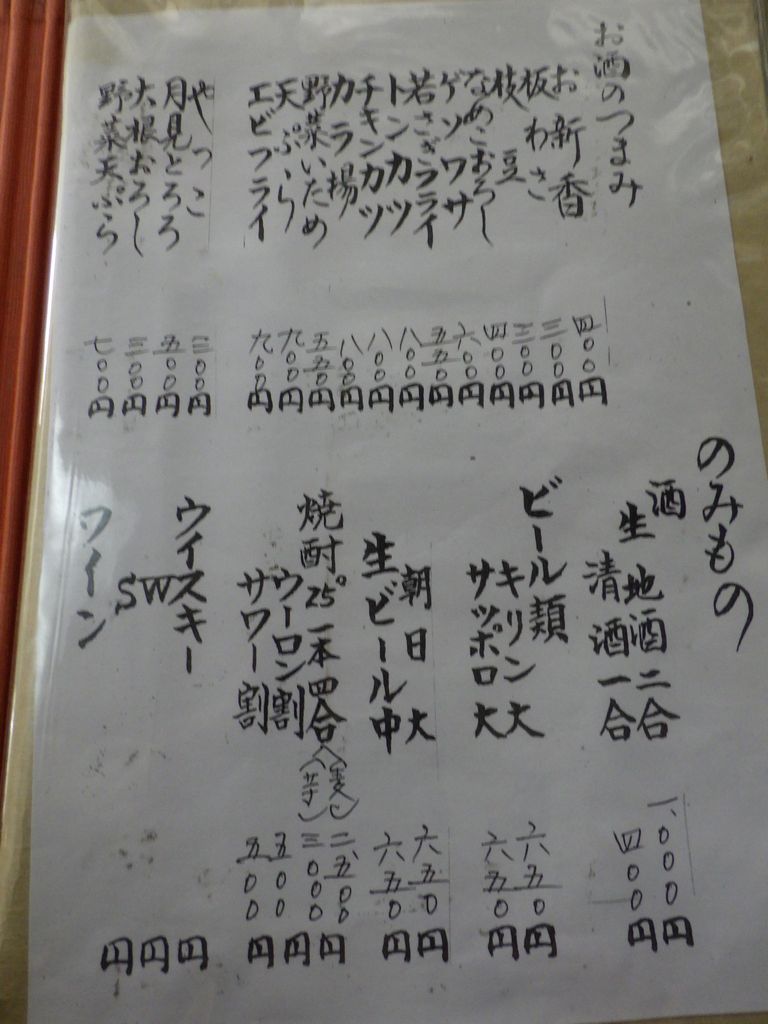 お酒のつまみ
お新香 四〇〇円
板わさ 三〇〇円
枝豆 三〇〇円
なめこおろし 四〇〇円
ゲソワサ 六〇〇円
若さぎフライ 五五〇円
トンカツ 八〇〇円
チキンカツ 八〇〇円
カラ揚 八〇〇円
野菜いため 五五〇円
天ぷら 九〇〇円
エビフライ 九〇〇円
やっこ 三〇〇円
月見とろろ 五〇〇円
大根おろし 三〇〇円
野菜天ぷら 七〇〇円
のみもの
酒
生地酒二合 一、〇〇〇円
清酒一合 四〇〇円
ビール類
キリン大 六五〇円
サッポロ大 六五〇円
朝日大 六五〇円
生ビール中 六五〇円
焼酎25°一本四合 (麦) 二、五〇〇円
(芋) 三〇〇〇円
ウーロン割 五〇〇円
サワー割 五〇〇
ウイスキー 円
SW 円
ワイン 円